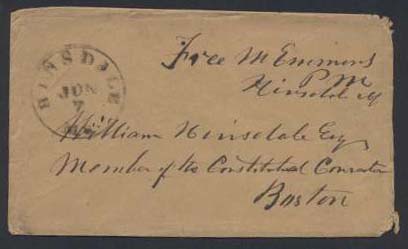 Free M Emmons
PM
Hinsdale
HINSDALE
JUN
7
William Hinsdale Esq
Member of the Constitutional Convention
Boston